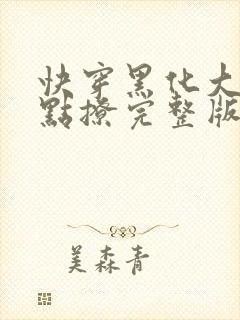 快穿黑化大
點撩完整版
美森青